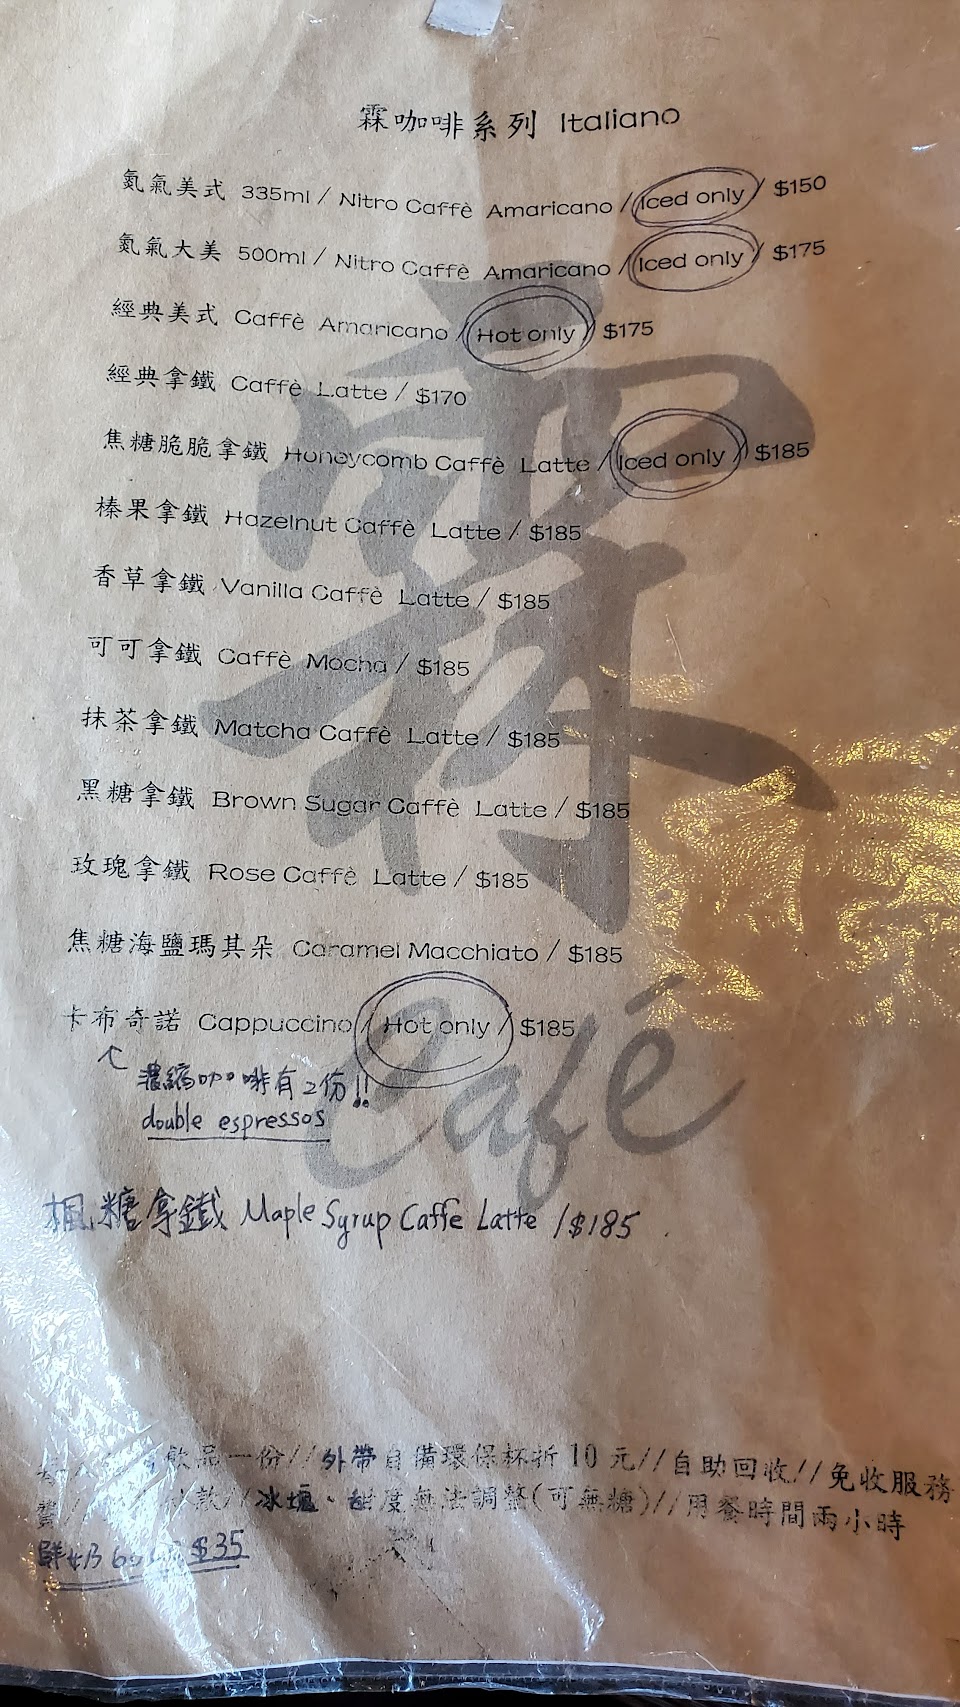 霖咖啡系列 Italiano
氮氣美式 335ml / Nitro Caffè Amaricano / Iced only / $150
氮氣大美 500ml / Nitro Caffè Amaricano / Iced only / $175
經典美式 Caffè Amaricano / Hot only / $175
經典拿鐵 Caffè Latte / $170
焦糖脆脆拿鐵 Honeycomb Caffè Latte / Iced only / $185
榛果拿鐵 Hazelnut Caffè Latte / $185
香草拿鐵 Vanilla Caffè Latte / $185
可可拿鐵 Caffè Mocha / $185
抹茶拿鐵 Matcha Caffè Latte / $185
黑糖拿鐵 Brown Sugar Caffè Latte / $185
玫瑰拿鐵 Rose Caffè Latte / $185
焦糖海鹽瑪其朵 Caramel Macchiato / $185
卡布奇諾 Cappuccino / Hot only / $185
濃縮咖啡有2份!!
double espressos
楓糖拿鐵 Maple Syrup Caffe Latte / $185
霖
Café
飲品一份//外帶自備環保杯折10元//自助回收//免收服務
費//冰塊、甜度無法調整(可無糖)//用餐時間兩小時
鮮奶 $35